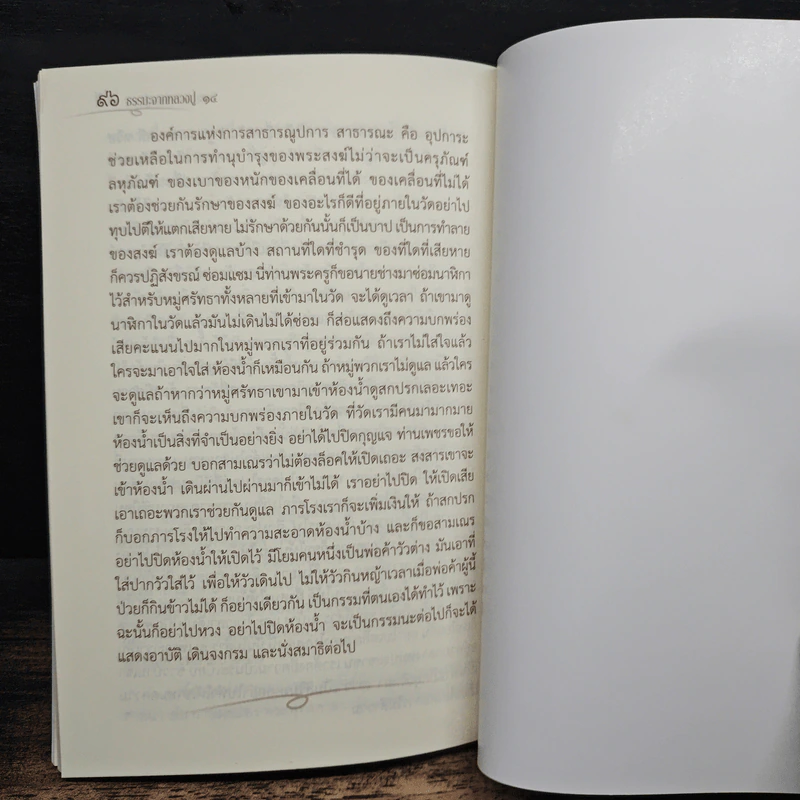 ๙๖ ธรรมะจากหลวงปู่ ๑๔
องค์การแห่งการสาธารณูปการ สาธารณะ คือ อุปการะ
ช่วยเหลือในการทำนุบำรุงของพระสงฆ์ไม่ว่าจะเป็นครุภัณฑ์
ลหุภัณฑ์ ของเบาของหนักของเคลื่อนที่ได้ ของเคลื่อนที่ไม่ได้
เราต้องช่วยกันรักษาของสงฆ์ ของอะไรก็ดีที่อยู่ภายในวัดอย่าไป
ทุบไปตีให้แตกเสียหาย ไม่รักษาด้วยกันนั้นก็เป็นบาป เป็นการทำลาย
ของสงฆ์ เราต้องดูแลบ้าง สถานที่ใดที่ชำรุด ของที่ใดที่เสียหาย
ก็ควรปฏิสังขรณ์ ซ่อมแซม นี่ท่านพระครูก็ขอนายช่างมาซ่อมนาฬิกา
ไว้สำหรับหมู่ศรัทธาทั้งหลายที่เข้ามาในวัด จะได้ดูเวลา ถ้าเขามาดู
นาฬิกาในวัดแล้วมันไม่เดินไม่ได้ซ่อม ก็ส่อแสดงถึงความบกพร่อง
เสียคะแนนไปมากในหมู่พวกเราที่อยู่ร่วมกัน ถ้าเราไม่ใส่ใจแล้ว
ใครจะมาเอาใจใส่ ห้องน้ำก็เหมือนกัน ถ้าหมู่พวกเราไม่ดูแล แล้วใคร
จะดูแลถ้าหากว่าหมู่ศรัทธาเขามาเข้าห้องน้ำดูสกปรกเลอะเทอะ
เขาก็จะเห็นถึงความบกพร่องภายในวัด ที่วัดเรามีคนมามากมาย
ห้องน้ำเป็นสิ่งที่จำเป็นอย่างยิ่ง อย่าได้ไปปิดกุญแจ ท่านเพชรขอให้
ช่วยดูแลด้วย บอกสามเณรว่าไม่ต้องล็อคให้เปิดเถอะ สงสารเขาจะ
เข้าห้องน้ำ เดินผ่านไปผ่านมาก็เข้าไม่ได้ เราอย่าไปปิด ให้เปิดเสีย
เอาเถอะพวกเราช่วยกันดูแล ภารโรงเราก็จะเพิ่มเงินให้ ถ้าสกปรก
ก็บอกภารโรงให้ไปทำความสะอาดห้องน้ำบ้าง และก็ขอสามเณร
อย่าไปปิดห้องน้ำให้เปิดไว้ มีโยมคนหนึ่งเป็นพ่อค้าวัวต่าง มันเอาที่
ใส่ปากวัวใส่ไว้ เพื่อให้วัวเดินไป ไม่ให้วัวกินหญ้าเวลาเมื่อพ่อค้าผู้นี้
ป่วยก็กินข้าวไม่ได้ ก็อย่างเดียวกัน เป็นกรรมที่ตนเองได้ทำไว้ เพราะ
ฉะนั้นก็อย่าไปหวง อย่าไปปิดห้องน้ำ จะเป็นกรรมนะต่อไปก็จะได้
แสดงอาบัติ เดินจงกรม และนั่งสมาธิต่อไป